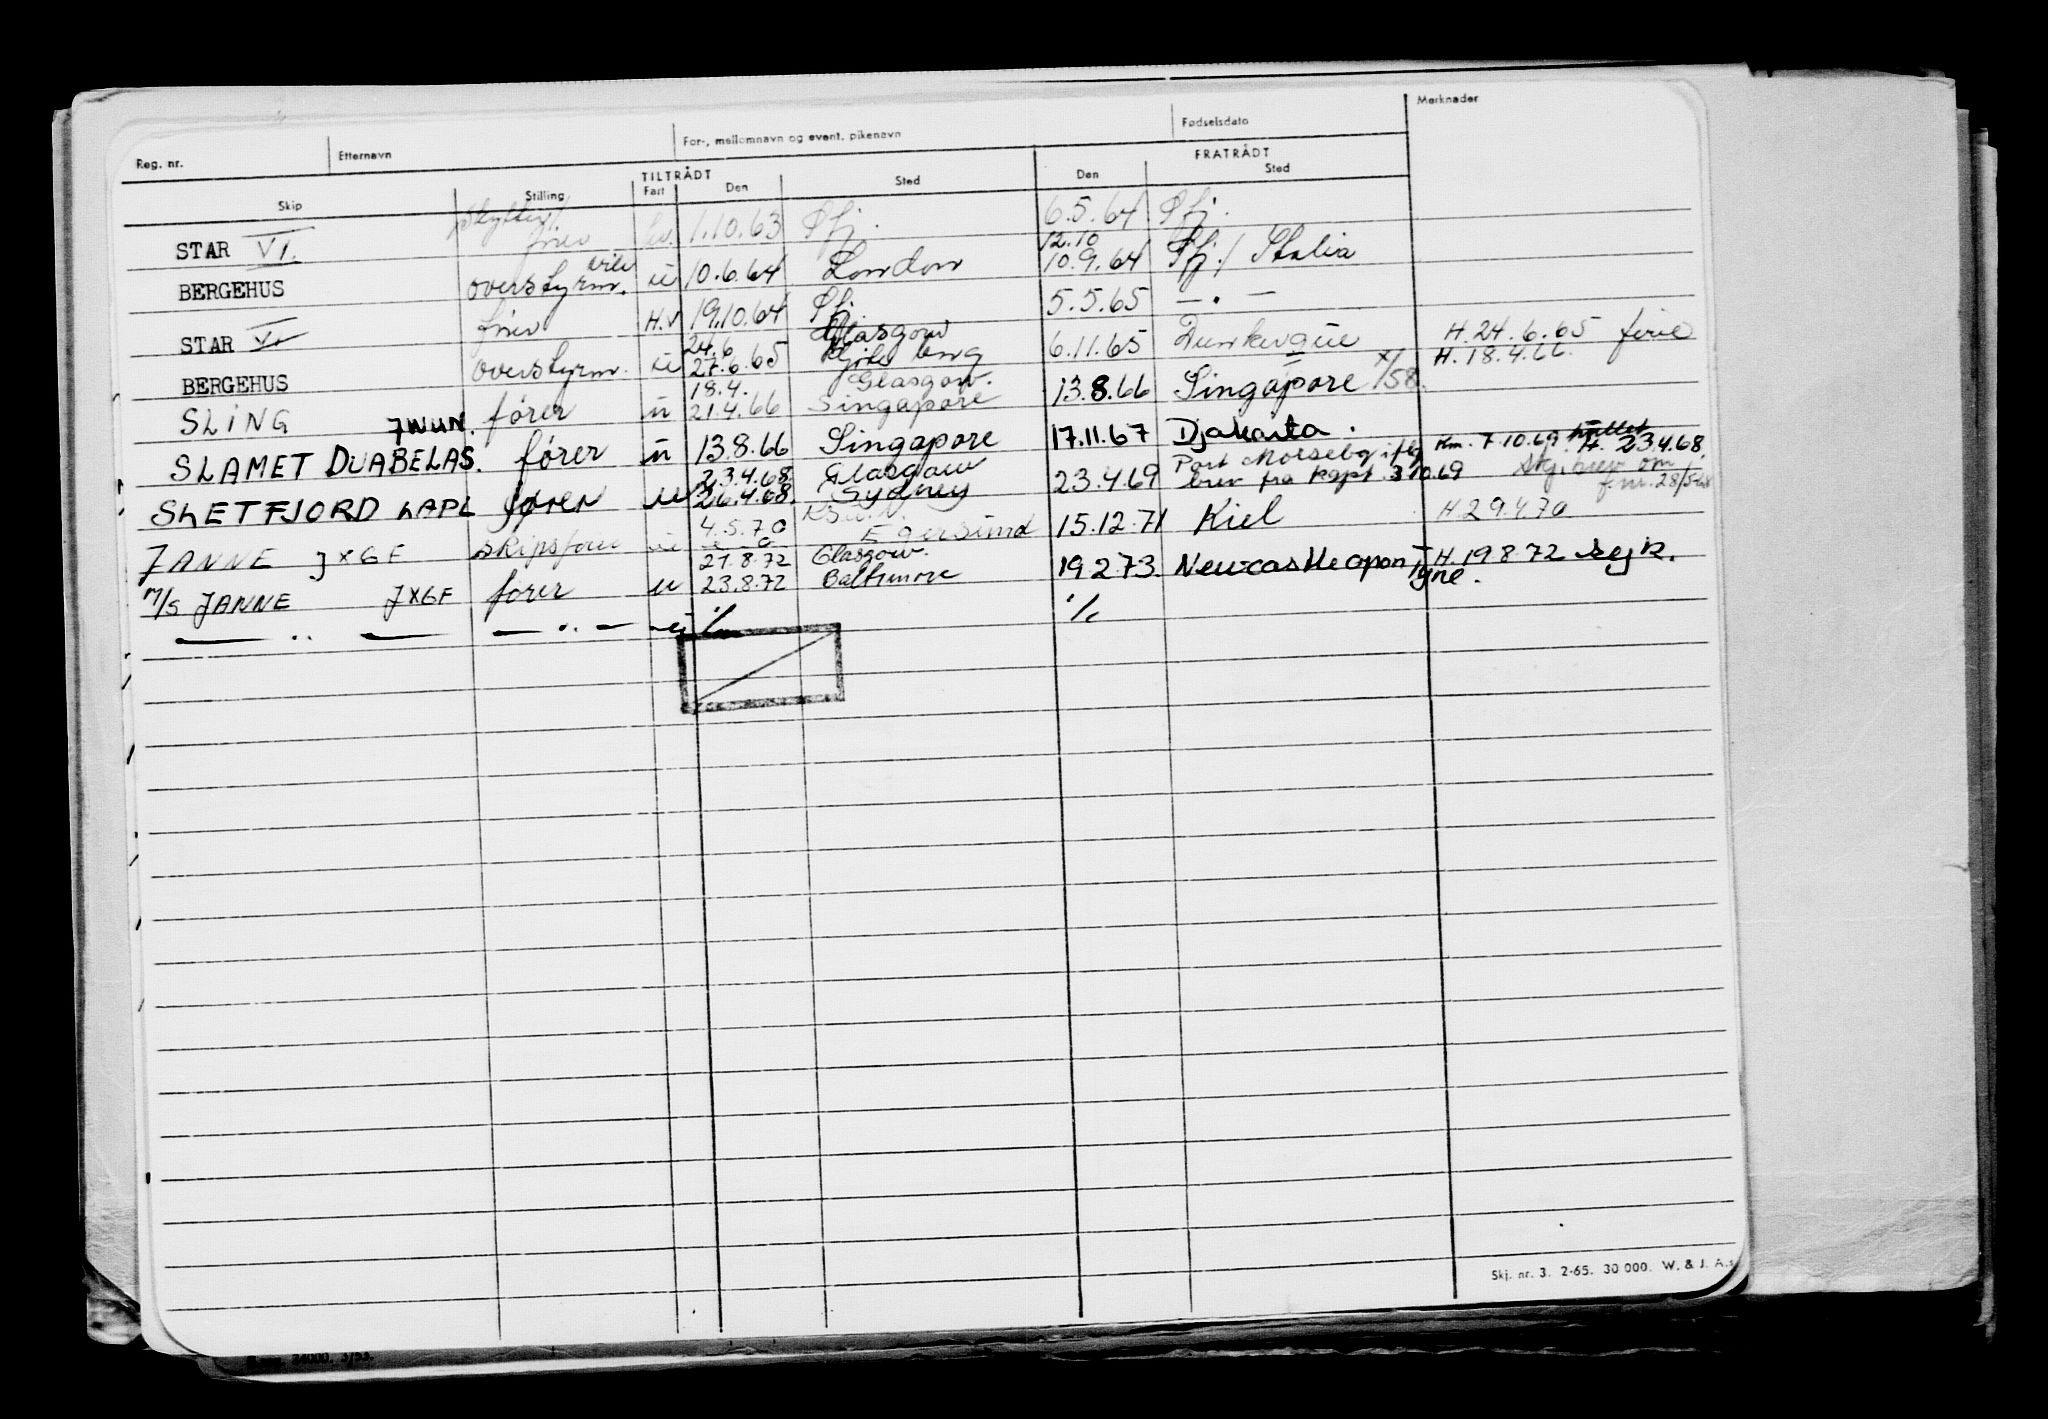 Reg. nr. Etternavn For-, mellomnavn og event. pikenavn Fødselsdato Merknader
TILTRÅDT FRATRÅDT
Skip Stilling Fart Den Sted Den Sted
STAR VI. skytter/ 1.10.63 Sfj. 6.5.64 Sfj.
12.10
BERGEHUS overstyrm. u 10.6.64 London 10.9.64 Sfj. / Italia
STAR H.V 19.10.64 Sfj. 5.5.65 — . —
24.6 Glasgow
BERGEHUS overstyrm. u 27.6.65 6.11.65 Dunkerque H. 24.6.65 ferie
18.4. Glasgow. H. 18.4.66.
SLING fører u 21.4.66 Singapore 13.8.66 Singapore x/58.
JWUN.
SLAMET DUABELAS. fører u 13.8.66 Singapore 17.11.67 Djakarta . Km. 7.10.69 H. 23.4.68.
23.4.68. Glasgow Port Moresby iflg
SLETFJORD LAPL fører u 26.4.68. Sydney 23.4.69 brev fra kapt. 3.10.69 brev om
28/5-68
4.5.70
JANNE JXGF u Egersund 15.12.71 Kiel H. 29.4.70
21.8.72 Glasgow.
M/S JANNE JXGF fører u 23.8.72 Baltimore 19.2.73. Newcastle upon Tyne. H. 19.8.72 regk.
— .. — — .. — u ./. ./.
Skj. nr. 3. 2-65. 30 000. W. & J. A.s
24000. 3/53.